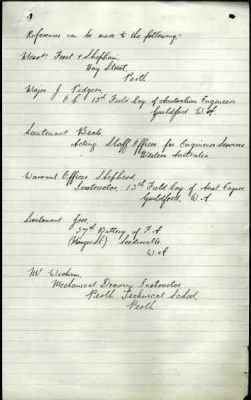 References can be made to the following:-
Messrs Frost & Shipham
Hay Street
Perth
Major J Pidgeon
O.C. 13th Field Coy of Australian Engineers
Guildford W.A
Lieutenant Beale
Acting Staff Officer for Engineer Services
Western Australia.
Warrant Officer Shepherd
Instructor 13th Field Coy of Aust Engrs
Guildford, W.A
Lieutenant
37th Battery of F.A
W.A
Mr
Mechanical Drawing Instructor
Perth Technical School
Perth